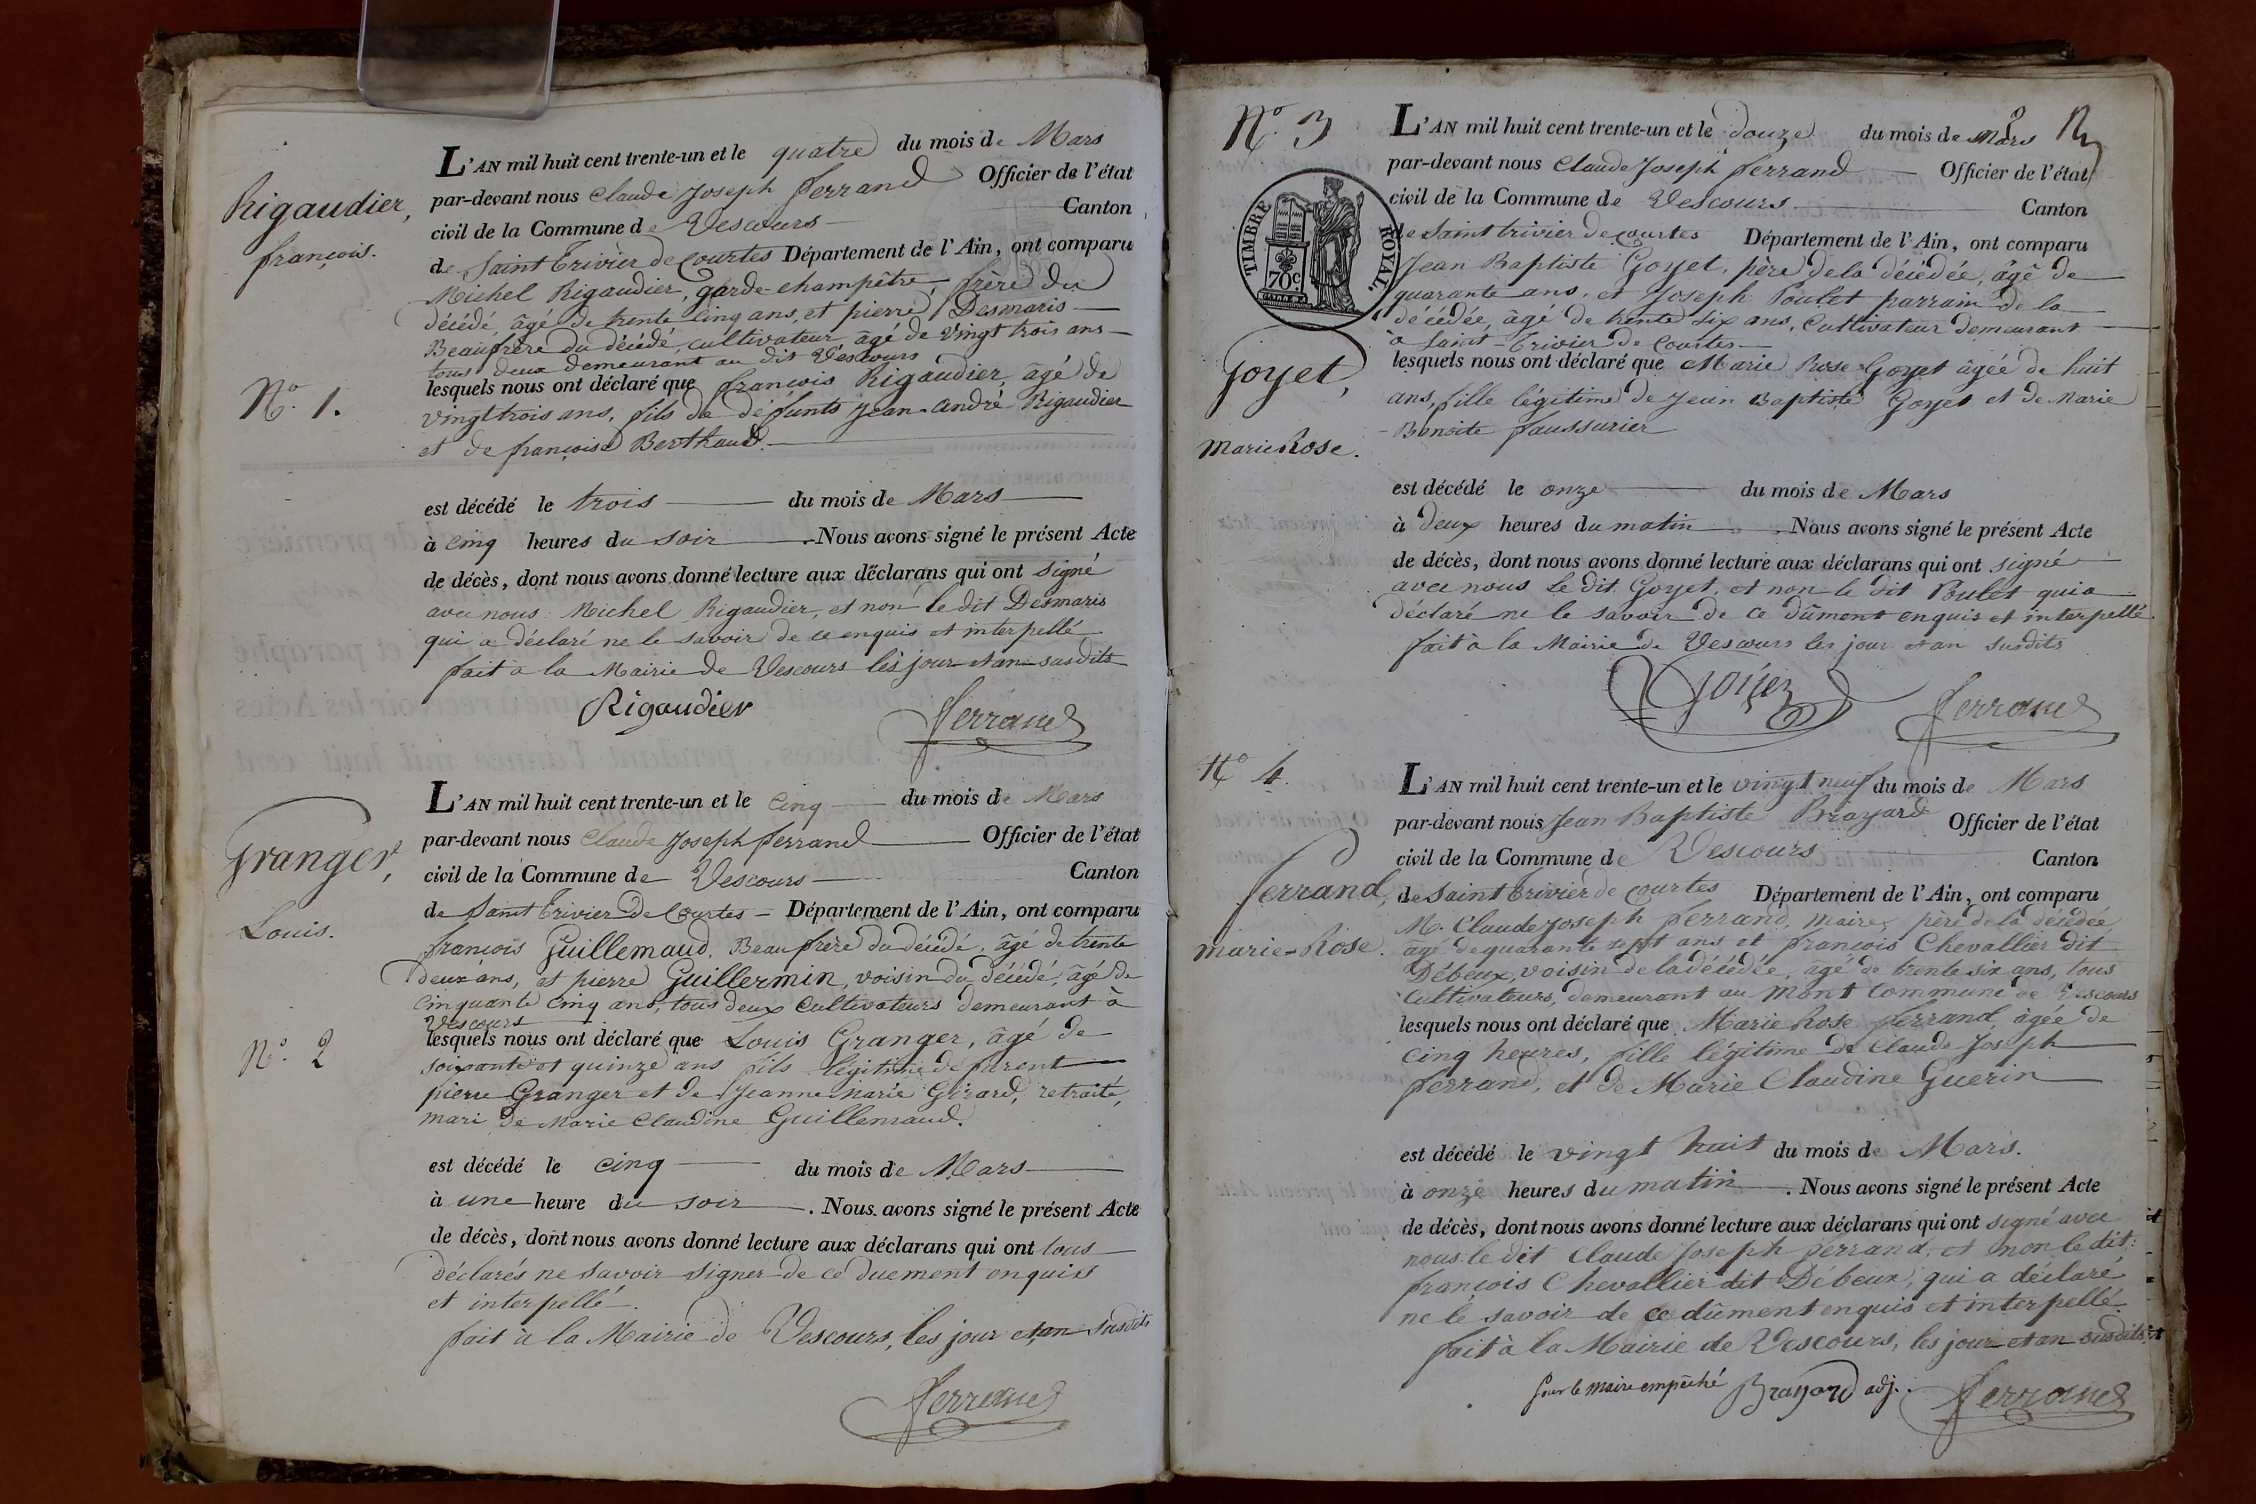 L'AN mil huit cent trente-un et le quatre du mois de Mars
par-devant nous Claude Joseph Ferrand Officier de l'état
civil de la Commune de Vescours Canton
de Saint Trivier de Courtes Département de l'Ain, ont comparu
Michel Rigaudier, garde-champêtre, frère du
décédé, âgé de trente cinq ans, et pierre Desmaris
Beaufrère du décédé, cultivateur âgé de vingt trois ans
tous deux demeurant au dit Vescours
lesquels nous ont déclaré que françois Rigaudier, âgé de
vingt trois ans, fils de défunts Jean-André Rigaudier
et de françoise Berthaud.
est décédé le trois du mois de Mars
à cinq heures du soir. Nous avons signé le présent Acte
de décès, dont nous avons donné lecture aux déclarans qui ont signé
avec nous Michel Rigaudier, et non le dit Desmaris
qui a déclaré ne le savoir de ce enquis et interpellé
fait à la Mairie de Vescours les jour et an susdits
Rigaudier Ferrand
Rigaudier,
françois.
N.° 1.
L'AN mil huit cent trente-un et le cinq du mois de Mars
par-devant nous Claude Joseph ferrand Officier de l'état
civil de la Commune de Vescours Canton
de Saint Trivier de Courtes Département de l'Ain, ont comparu
françois Guillemaud, Beaufrère du décédé, âgé de trente
deux ans, et pierre Guillermin, voisin du décédé, âgé de
cinquante cinq ans, tous deux cultivateurs demeurant à
Vescours
lesquels nous ont déclaré que Louis Granger, âgé de
soixante et quinze ans fils légitime de furent
pierre Granger et de Jeanne Marie Girard, retraité,
mari de Marie Claudine Guillemaud.
est décédé le cinq du mois de Mars
à une heure du soir. Nous avons signé le présent Acte
de décès, dont nous avons donné lecture aux déclarans qui ont tous
déclarés ne savoir signer de ce duement enquis
et interpellé.
fait à la Mairie de Vescours, les jour et an susdits
Ferrand
Granger,
Louis.
N.° 2
N.° 3
L'AN mil huit cent trente-un et le douze du mois de Mars 2
par-devant nous Claude Joseph ferrand Officier de l'état
civil de la Commune de Vescours Canton
de Saint trivier de Courtes Département de l'Ain, ont comparu
Jean Baptiste Goyet, père de la décédée, âgé de
quarante ans, et Joseph Poulet parrain de la
décédée, âgé de trente six ans, cultivateur demeurant
à Saint-Trivier de Courtes
lesquels nous ont déclaré que Marie Rose Goyet âgée de huit
ans, fille légitime de Jean Baptiste Goyet et de Marie
Benoite faussurier
est décédé le onze du mois de Mars
à deux heures du matin. Nous avons signé le présent Acte
de décès, dont nous avons donné lecture aux déclarans qui ont signé
avec nous le dit Goyet, et non le dit Poulet qui a
déclaré ne le savoir de ce dûment enquis et interpellé
fait à la Mairie de Vescours les jour et an susdits
Goyet Ferrand
TIMBRE ROYAL.
70c.
Goyet,
Marie Rose.
N.° 4.
L'AN mil huit cent trente-un et le vingt neuf du mois de Mars
par-devant nous Jean Baptiste Brayard Officier de l'état
civil de la Commune de Vescours Canton
de Saint trivier de Courtes Département de l'Ain, ont comparu
M. Claude Joseph Ferrand, maire, père de la décédée,
âgé de quarante sept ans et françois Chevallier dit
Débeux, voisin de la décédée, âgé de trente six ans, tous
cultivateurs, demeurant au Mont Commune de Vescours
lesquels nous ont déclaré que Marie Rose ferrand, âgée de
cinq heures, fille légitime de Claude Joseph
ferrand, et de Marie Claudine Guerin
est décédé le vingt huit du mois de Mars.
à onze heures du matin. Nous avons signé le présent Acte
de décès, dont nous avons donné lecture aux déclarans qui ont signé avec
nous le dit Claude Joseph ferrand, et non le dit
françois Chevallier dit Débeux, qui a déclaré
ne le savoir de ce dûment enquis et interpellé
fait à la Mairie de Vescours, les jour et an susdits
pour le maire empêché Brayard adj. Ferrand
ferrand,
Marie-Rose.